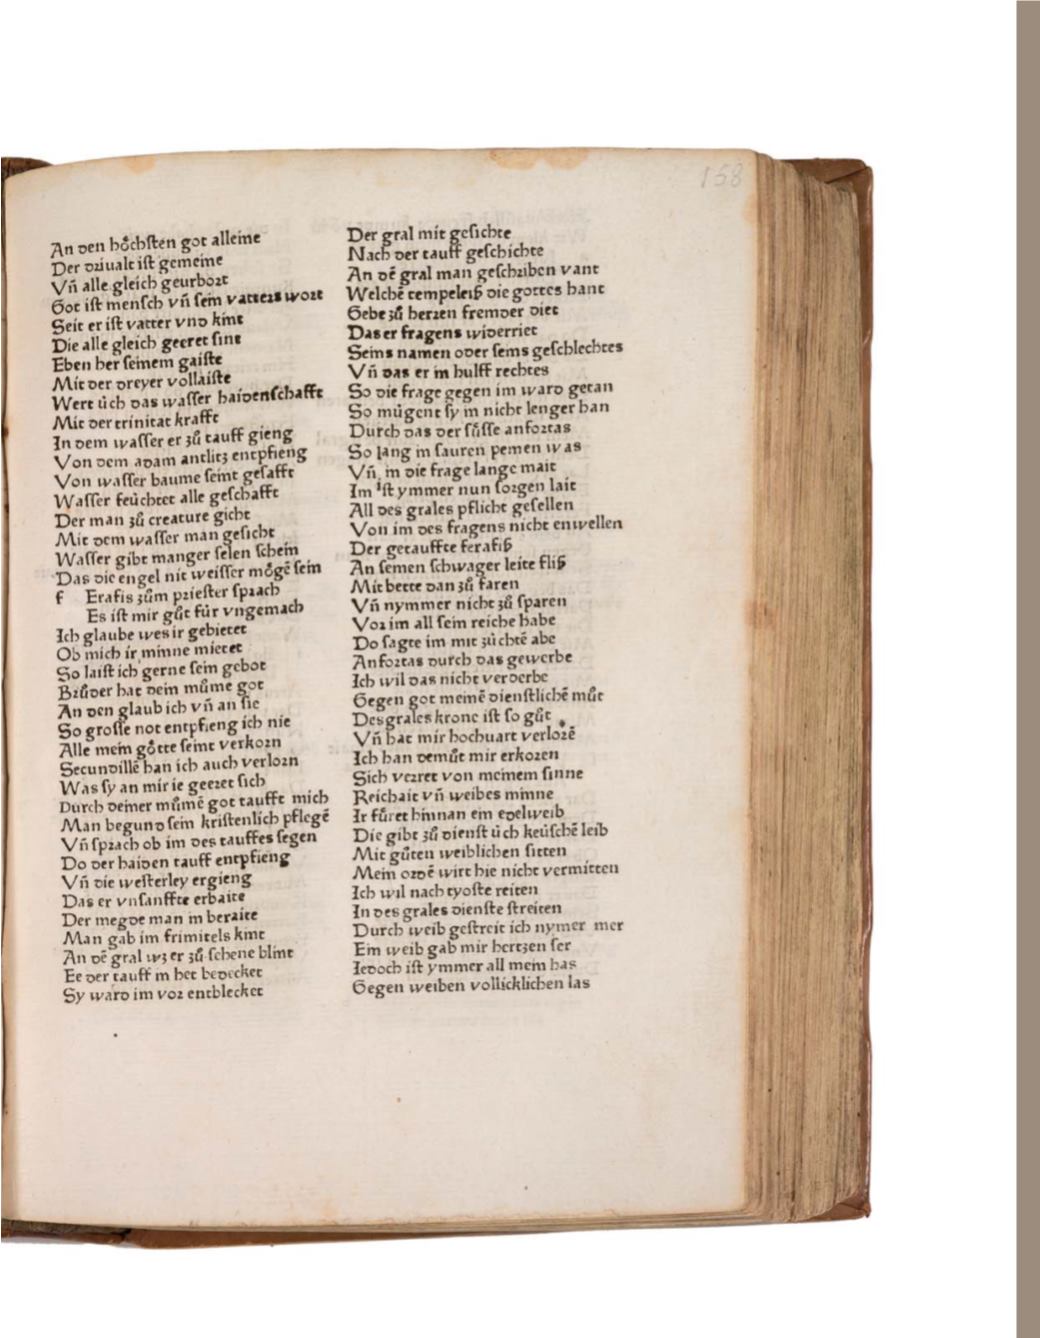 158
An den hoͤchſten got alleine
Der driualt iſt gemeine
Vñ alle gleich geurbort
Got iſt menſch vñ ſein vatters wort
Seit er iſt vatter vnd kint
Die alle gleich geeret ſint
Eben her ſeinem gaiſte
Mit der dreyer vollaiſte
Wert uͤch das waſſer haidenſchafft
Mit der trinitat krafft
In dem waſſer er zuͦ tauff gieng
Von dem adam antlitz entpfieng
Von waſſer baume ſeint geſafft
Waſſer feuͤchtet alle geſchafft
Der man zuͦ creature gicht
Mit dem waſſer man geſicht
Waſſer gibt manger ſelen ſchein
Das die engel nit weiſſer moͤgē ſein
f Erafis zuͦm prieſter ſprach
Es iſt mir guͦt fuͤr vngemach
Ich glaube wes ir gebietet
Ob mich ir minne mietet
So laiſt ich gerne ſein gebot
Bruͦder hat dein muͦme got
An den glaub ich vñ an ſie
So groſſe not entpfieng ich nie
Alle mein goͤtte ſeint verkorn
Secundillē han ich auch verlorn
Was ſy an mir ie geeret ſich
Durch deiner muͦmē got taufft mich
Man begund ſein kriſtenlich pflegē
Vñ ſprach ob im des tauffes ſegen
Do der haiden tauff entpfieng
Vñ die weſterley ergieng
Das er vnſanffte erbaite
Der megde man in beraite
Man gab im frimitels kint
An dē gral wz er zuͦ ſehene blint
Ee der tauff in het bedecket
Sy ward im vor entblecket
Der gral mit geſichte
Nach der tauff geſchichte
An dē gral man geſchriben vant
Welchē tempeleiß die gottes hant
Gebe zuͦ herren fremder diet
Das er fragens widerriet
Seins namen oder ſeins geſchlechtes
Vñ das er in hulff rechtes
So die frage gegen im ward getan
So muͤgent ſy in nicht lenger han
Durch das der ſuͤſſe anfortas
So lang in ſauren peinen was
Vñ in die frage lange mait
Im iſt ymmer nun ſorgen lait
All des grales pflicht geſellen
Von im des fragens nicht enwellen
Der getauffte ferafiß
An ſeinen ſchwager leite fliß
Mit bette dan zuͦ faren
Vñ nymmer nicht zuͦ ſparen
Vor im all ſein reiche habe
Do ſagte im mit zuͤchtē abe
Anfortas durch das gewerbe
Ich wil das nicht verderbe
Gegen got meinē dienſtlichē muͦt
Des grales krone iſt ſo guͦt
Vñ hat mir hochuart verlorē
Ich han demuͦt mir erkoren
Sich verret von meinem ſinne
Reichait vñ weibes minne
Ir fuͤret hinnan ein edelweib
Die gibt zuͦ dienſt uͤch keuͤſchē leib
Mit guͦten weiblichen ſitten
Mein ordē wirt hie nicht vermitten
Ich wil nach tyoſte reiten
In des grales dienſte ſtreiten
Durch weib geſtreit ich nymer mer
Ein weib gab mir hertzen ſer
Iedoch iſt ymmer all mein has
Gegen weiben vollicklichen las